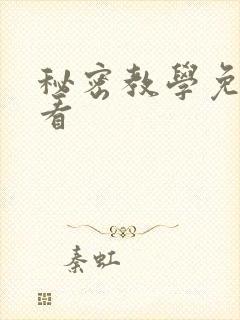 秘密教學免
看
秦虹